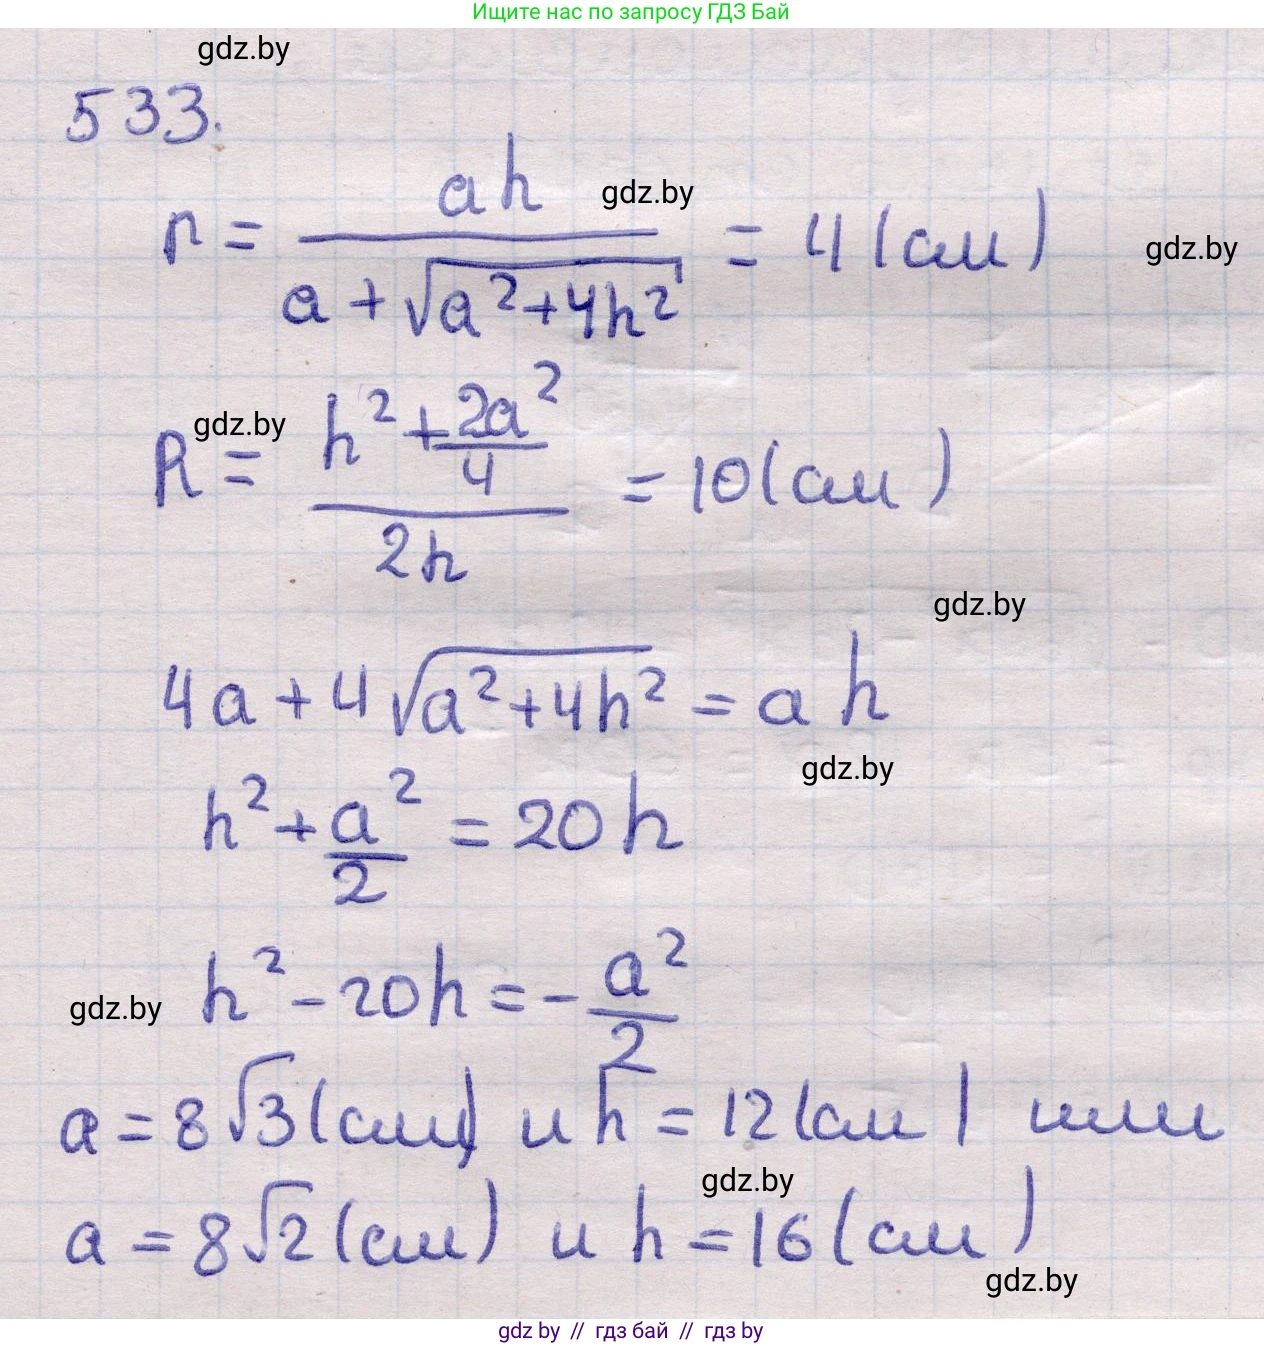 Ищите нас по запросу ГДЗ Бай
gdz.by
533.
r = ah / (a + √(a² + 4h²)) = 4 (см)
gdz.by
gdz.by
R = (h² + 2a²/4) / 2h = 10 (см)
gdz.by
gdz.by
4a + 4√(a² + 4h²) = ah
gdz.by
h² + a²/2 = 20h
h² - 20h = - a²/2
gdz.by
a = 8√3 (см) и h = 12 (см) или
gdz.by
a = 8√2 (см) и h = 16 (см)
gdz.by
gdz by // гдз бай // гдз by